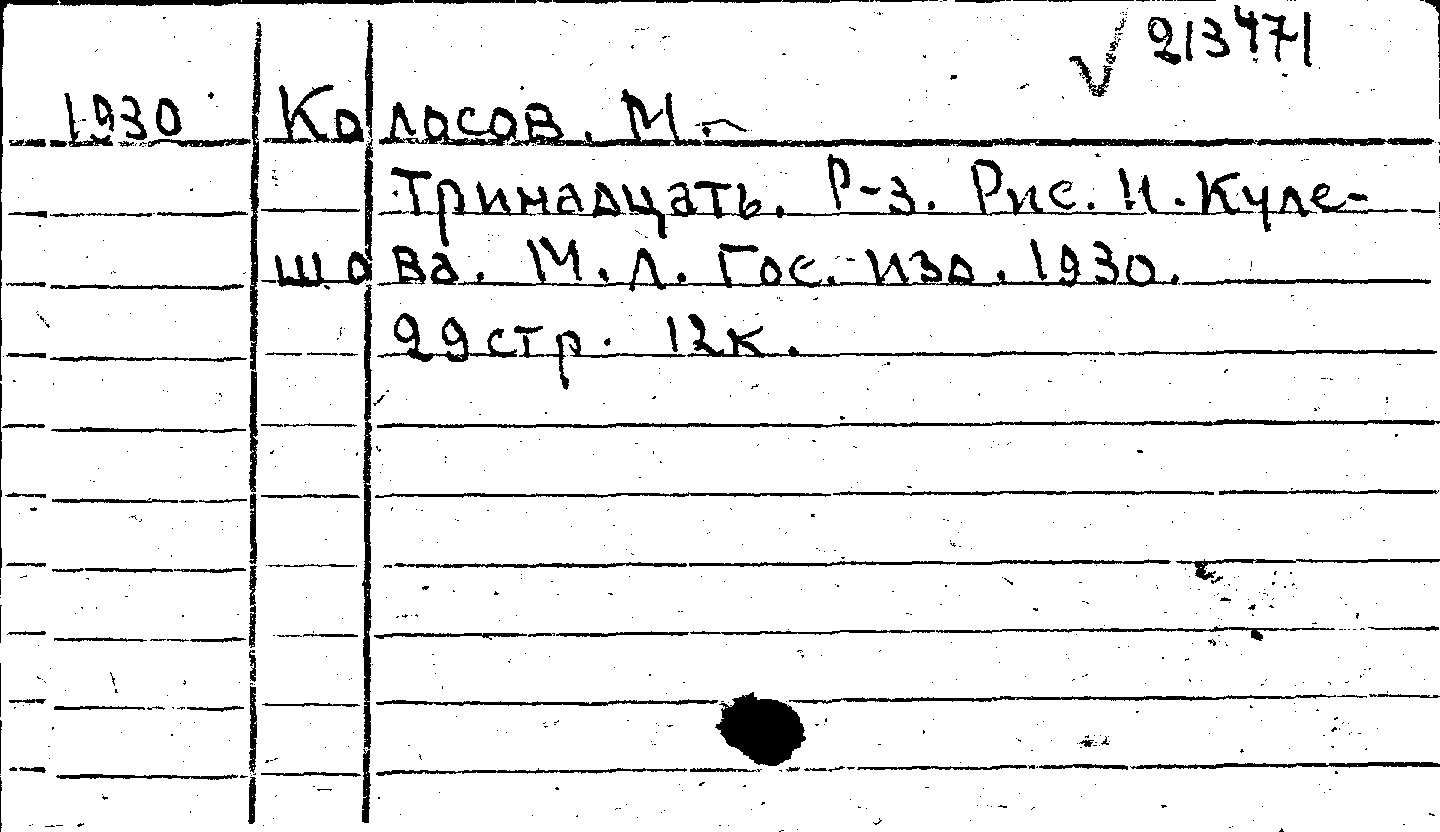 √ 213471
1930 Колосов. М.
Тринадцать. Р-з. Рис. Н. Куле-
шова. М. Л. Гос. изд. 1930.
29 стр. 12 к.